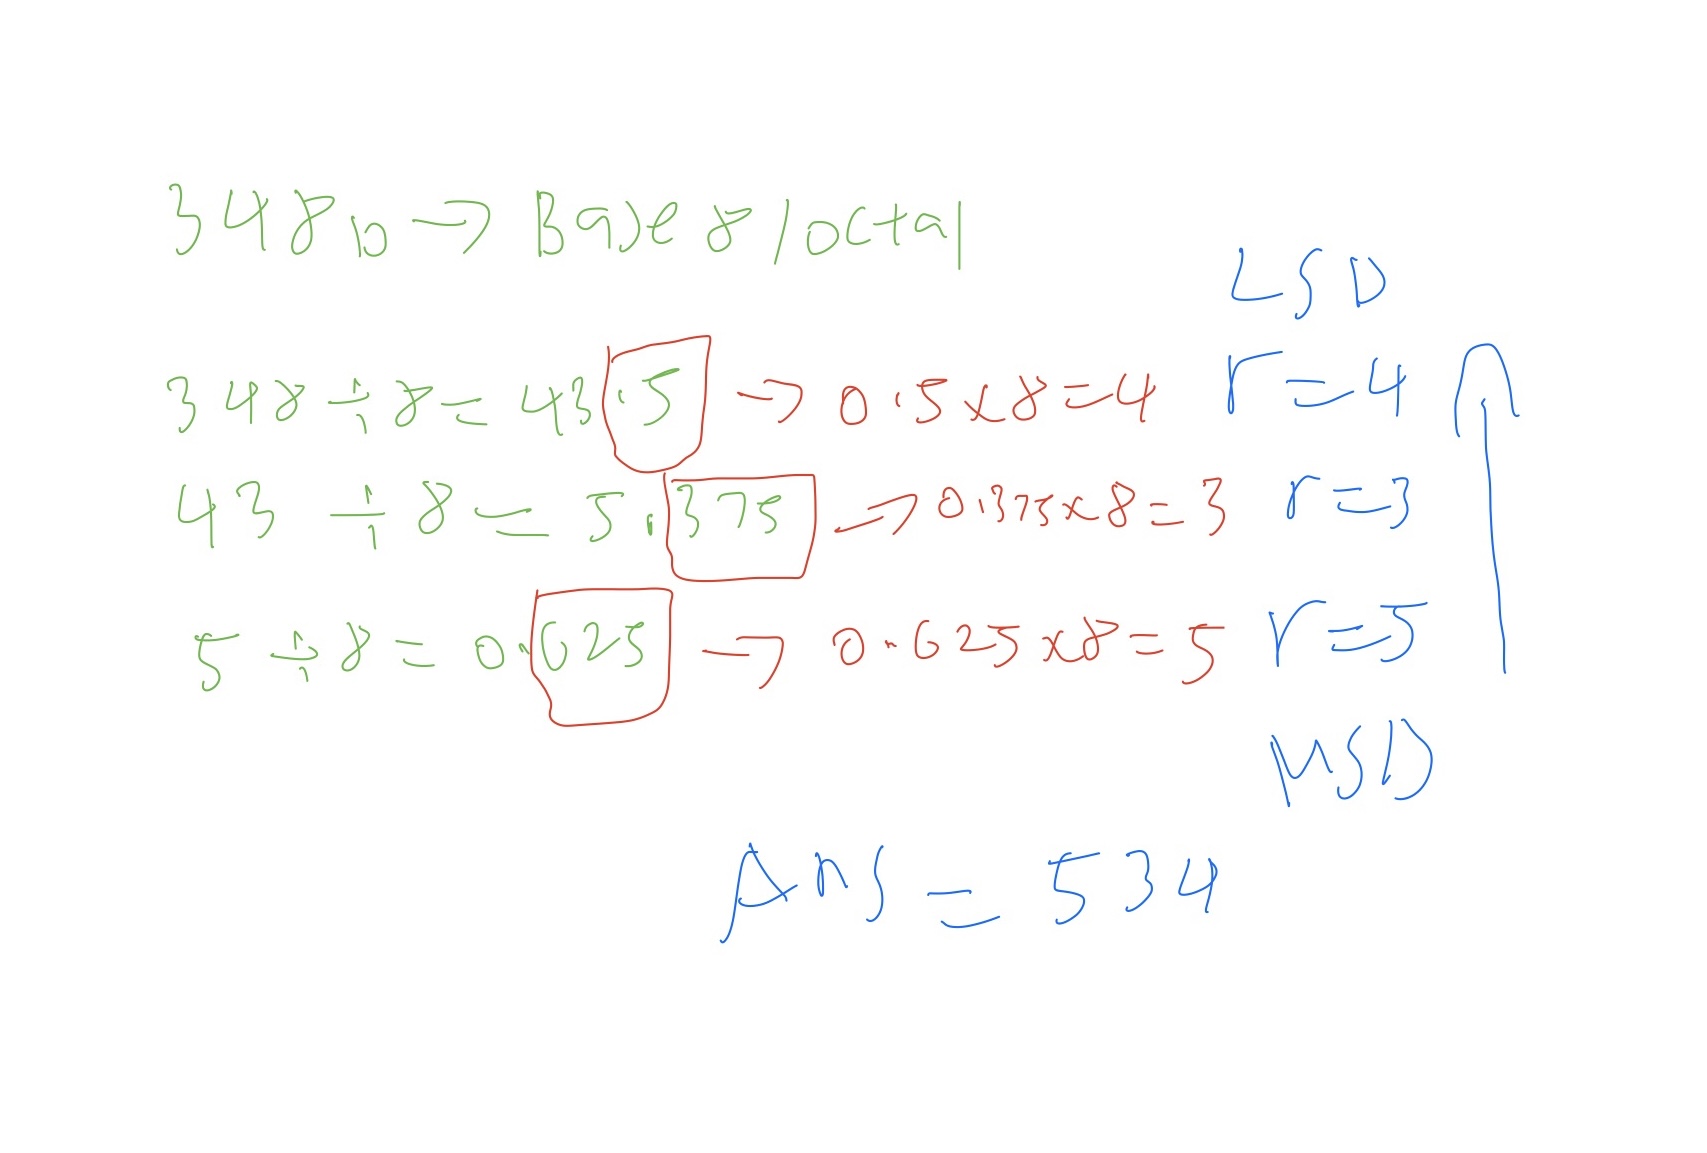 348₁₀ → Base 8/octal
LSD
348 ÷ 8 = 43.5 → 0.5 x 8 = 4 r = 4
43 ÷ 8 = 5.375 → 0.375 x 8 = 3 r = 3
5 ÷ 8 = 0.625 → 0.625 x 8 = 5 r = 5
MSD
Ans = 534